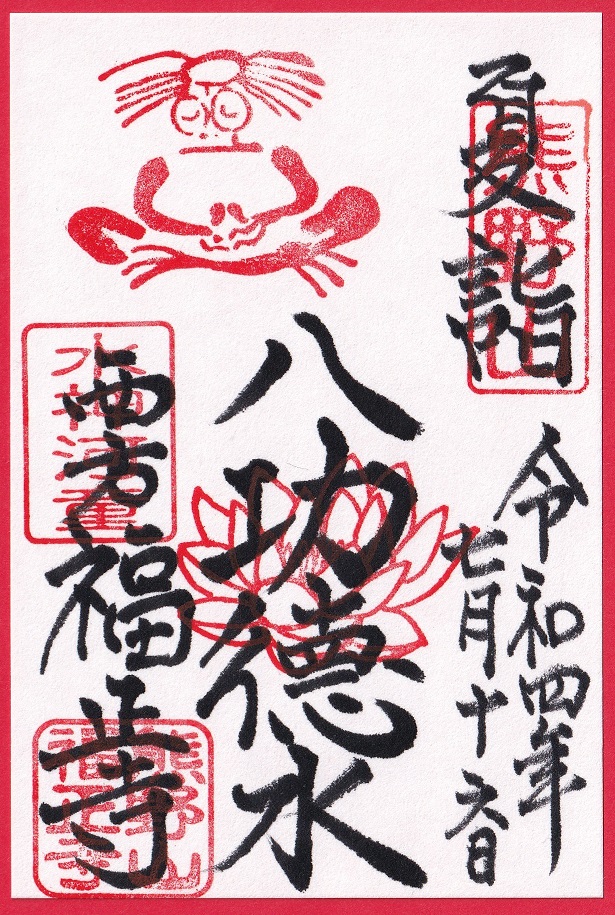 夏詣
熊野山
令和四年
七月十六日
八功徳水
西方福正寺
水神河童
熊野山
福正寺